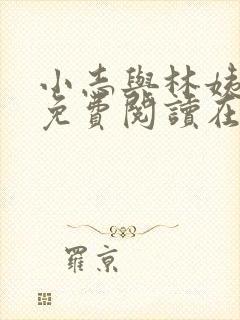 小志與林姨
免費閱讀在
羅京